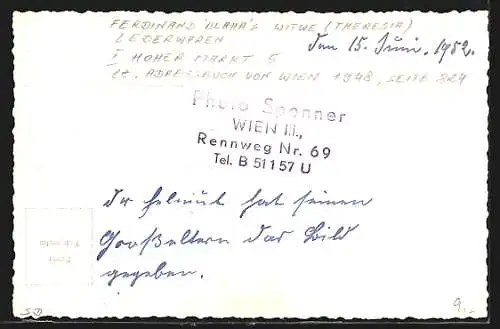 FERDINAND BLAHA'S WITWE (THERESIA)
LEDERWAREN
I HOHER MARKT 5
LT. ADRESSBUCH VON WIEN 1948, SEITE 824
den 15. Juni. 1952.
Photo Sponner
WIEN III.,
Rennweg Nr. 69
Tel. B 51157 U
der Helmut hat seinen
Großeltern das Bild
gegeben.
SD
9,-